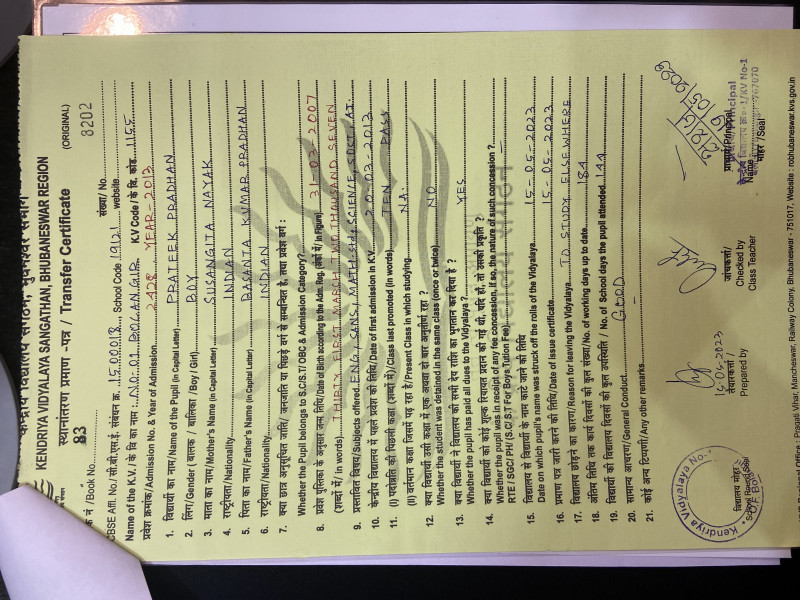 केन्द्रीय विद्यालय संगठन, भुवनेश्वर संभाग
KENDRIYA VIDYALAYA SANGATHAN, BHUBANESWAR REGION
स्थानांतरण प्रमाण -पत्र / Transfer Certificate (ORIGINAL)
क नं /Book No. 83 संख्या/ No. 8202
CBSE Affl. No./ सी.बी.एस.ई. संबधन क्र. 1500018 School Code 19121 website
Name of the K.V. / के वि का नाम : NO. 01 BOLANGIR K.V Code / के वि. कोड. 1155
प्रवेश क्रमांक/Admission No. & Year of Admission 2428 YEAR-2013
1. विद्यार्थी का नाम/Name of the Pupil (in Capital Letter) PRATEEK PRADHAN
2. लिंग/Gender ( बालक / बालिका / Boy / Girl) BOY
3. माता का नाम/Mother's Name (in Capital Letter) SUSANGITA NAYAK
4. राष्ट्रीयता/Nationality INDIAN
5. पिता का नाम/Father's Name (in Capital Letter) BASANTA KUMAR PRADHAN
6. राष्ट्रीयता/Nationality INDIAN
7. क्या छात्र अनुसूचित जाति/ जनजाति या पिछड़े वर्ग से सम्बन्धित है, तथा प्रवेश वर्ग :
Whether the Pupil belongs to S.C/S.T/ OBC & Admission Category?
8. प्रवेश पुस्तिका के अनुसार जन्म तिथि/Date of Birth according to the Adm. Reg. (अंकों में/ in Figure) 31-03-2007
(शब्दों में/ in words) THIRTY FIRST MARCH TWO THOUSAND SEVEN
9. प्रस्तावित विषय/Subjects offered ENG, SANS, MATH SCIENCE, SO.ST, AI
10. केन्द्रीय विद्यालय में पहले प्रवेश की तिथि/Date of first admission in K.V. 20-03-2013
11. (I) पदोन्नति की पिछली कक्षा (शब्दों में)/Class last promoted (in words) TEN PASS
(II) वर्तमान कक्षा जिसमें पढ़ रहा है/Present Class in which studying NA.
12. क्या विद्यार्थी उसी कक्षा में एक अथवा दो बार अनुत्तीर्ण रहा ?
Whether the student was detained in the same class (once or twice) NO
13. क्या विद्यार्थी ने विद्यालय की सभी देय राशि का भुगतान कर दिया है ?
Whether the pupil has paid all dues to the Vidyalaya ? YES
14. क्या विद्यार्थी को कोई शुल्क रियायत प्रदान की गई थी, यदि हो, तो उसकी प्रकृति ?
Whether the pupil was in receipt of any fee concession, if so, the nature of such concession ?
RTE / SGC/ PH / (S.C/ S.T For Boys Tution Fee) —
15. विद्यालय से विद्यार्थी के नाम काटे जाने की तिथि
Date on which pupil's name was struck off the rolls of the Vidyalaya 15-05-2023
16. प्रमाण पत्र जारी करने की तिथि/Date of issue certificate 15-05-2023
17. विद्यालय छोड़ने का कारण/Reason for leaving the Vidyalaya TO STUDY ELSEWHERE
18. अंतिम तिथि तक कार्य दिवसों की कुल संख्या/No. of working days up to date 184
19. विद्यार्थी की विद्यालय दिवसों की कुल उपस्थिति / No. of School days the pupil attended 144
20. सामान्य आचरण/General Conduct GOOD
21. कोई अन्य टिप्पणी/Any other remarks —
15-05-2023
तैयारकर्ता /
Prepared by
जांचकर्ता/
Checked by
Class Teacher
15/05/2023
प्राचार्य/Principal
Name
मोहर / Seal
Principal
KV No-1
767070
विद्यालय मोहर
School Round Seal
Kendriya Vidyalaya No-1
Pragati Vihar, Mancheswar, Railway Colony, Bhubaneswar - 751017, Website : robhubaneswar.kvs.gov.in